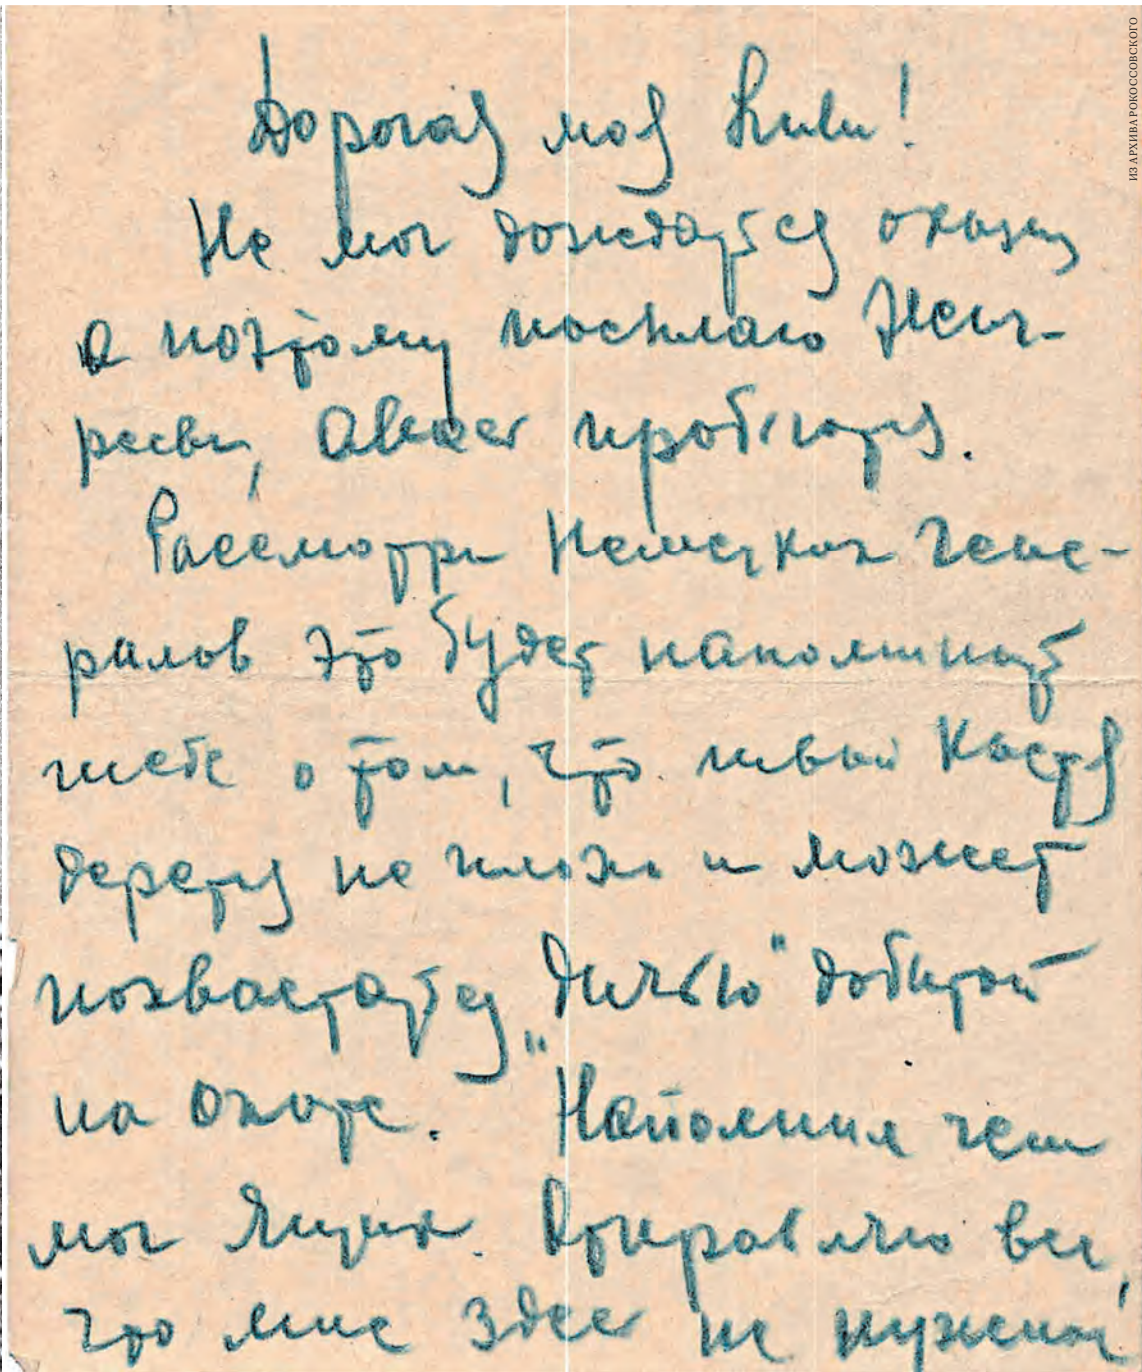 Дорогая моя Лили!
Не мог дождаться оказии
а поэтому посылаю
авось пробьются.
Рассмотри Немецких Гене-
ралов это будет напоминать
тебе о том, что твой Костя
дерется не плохо и может
похвастаться „дичью" добытой
на охоте. Наполнил чем
мог ящик. Отправляю все,
что мне здесь не нужно
ИЗ АРХИВА РОКОССОВСКОГО